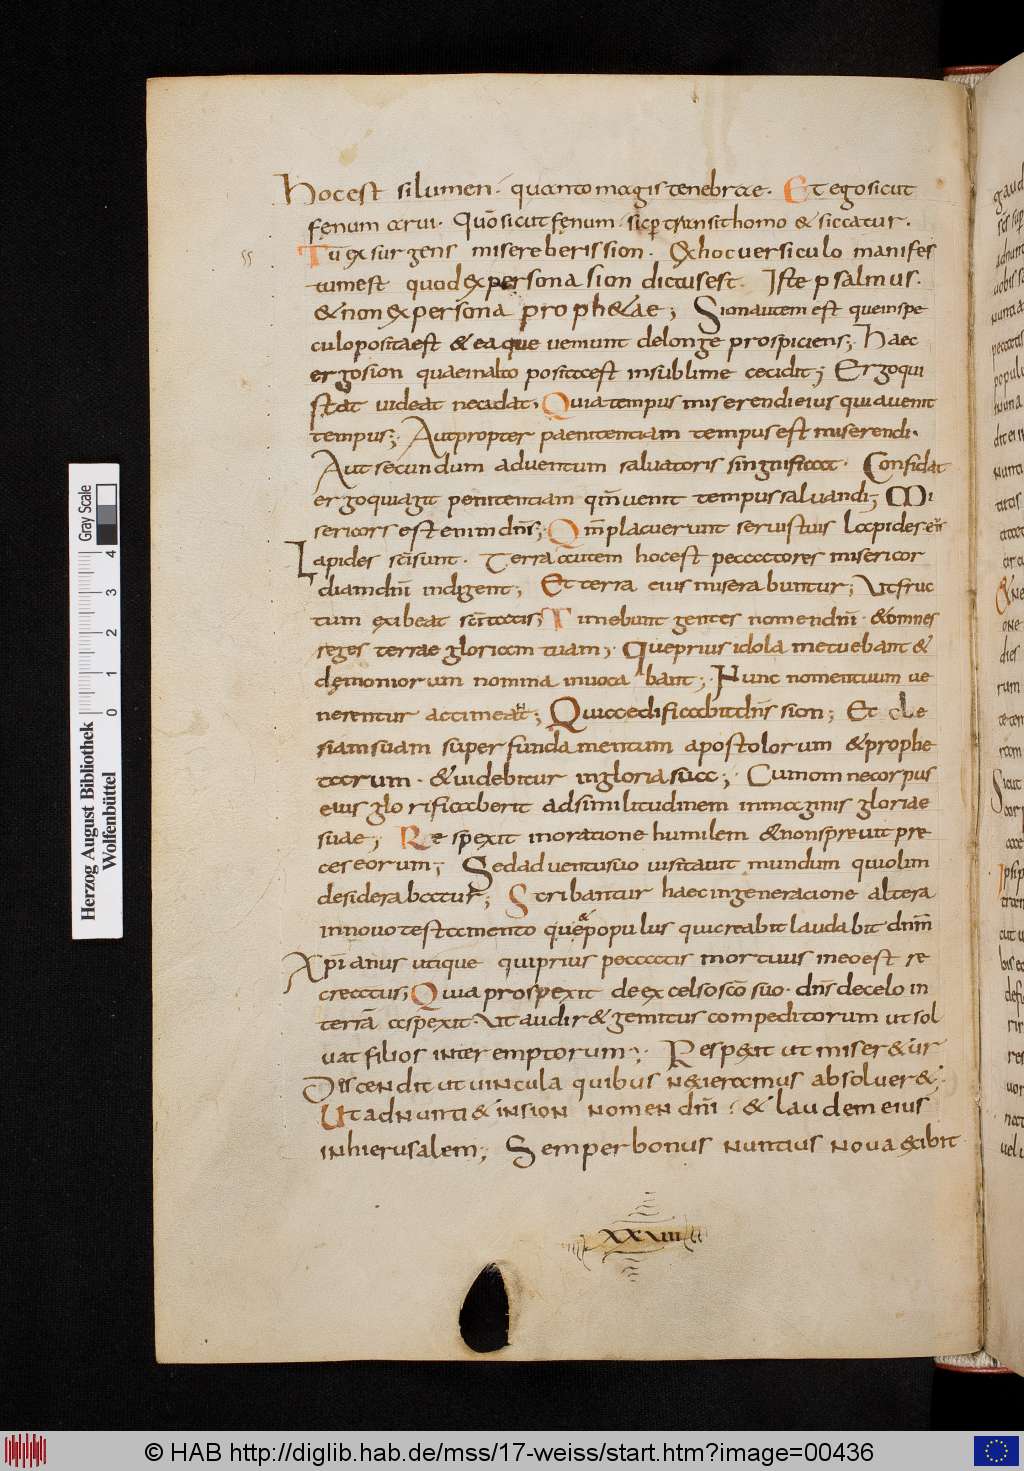 Hoc est si lumen. quanto magis tenebrae. Et ego sicut
fenum arui. Quō sicut fenum sic ꝑtransit homo & siccatur.
Tu exsurgens misereberis sion. Ex hoc uersiculo manifes
tum est quod ex persona sion dictus est. Iste psalmus.
& non ex persona proph&ae; Sion autem est que in spe
culo posita est & ea que ueniunt de longe prospiciens; Haec
ergo sion quae in alto posita est in sublime cecidit; Ergo qui
stat uideat ne cadat. Quia tempus miserendi eius quia uenit
tempus; Aut propter paenitentiam tempus est miserendi.
Aut secundum aduentum saluatoris singnificat. Confidat
ergo qui agit penitentiam qm̄ uenit tempus saluandi; Mi
sericors est enim dn̄s; Qm̄ placuerunt seruis tuis lapides ei'
Lapides sc̄i sunt. Terra autem hoc est peccatores misericor
diam dn̄i indigent; Et terra eius miserabuntur; Ut fruc
tum exibeat sc̄itatis; Timebunt gentes nomen dn̄i. & omnes
reges terrae gloriam tuam; Que prius idola metuebant &
demoniorum nomina inuocabant; Nunc nomen tuum ue
nerentur ac timeant; Qui aedificabit dn̄s sion; Et cle
siam suam super fundamentum apostolorum & prophe
tarum. & uidebitur in gloria sua; Cum omne corpus
eius glorificaberit ad similitudinem inmaginis gloriae
suae; Respexit in oratione humilem & non spreuit pre
ces eorum; Sed aduentu suo uisitauit mundum qui olim
desiderabatur; Scribantur haec in generacione altera
in nouo testamento que populus qui creabit laudabit dnm̄
Xp̄ianus utique qui prius peccatis mortuus in eo est re
creatus; Quia prospexit de excelso sc̄o suo. dn̄s de celo in
terrā aspexit. Ut audir& gemitus compeditorum ut sol
uat filios interemptorum; Respexit ut miser&ur
Discendit ut uincula quibus nexi eramus absoluer&;
Ut adnunti& in sion nomen dn̄i. & laudem eius
in hierusalem; Semper bonus nuntius noua exibit
XXVIII
Gray Scale
0 1 2 3 4
Herzog August Bibliothek
Wolfenbüttel
© HAB http://diglib.hab.de/mss/17-weiss/start.htm?image=00436